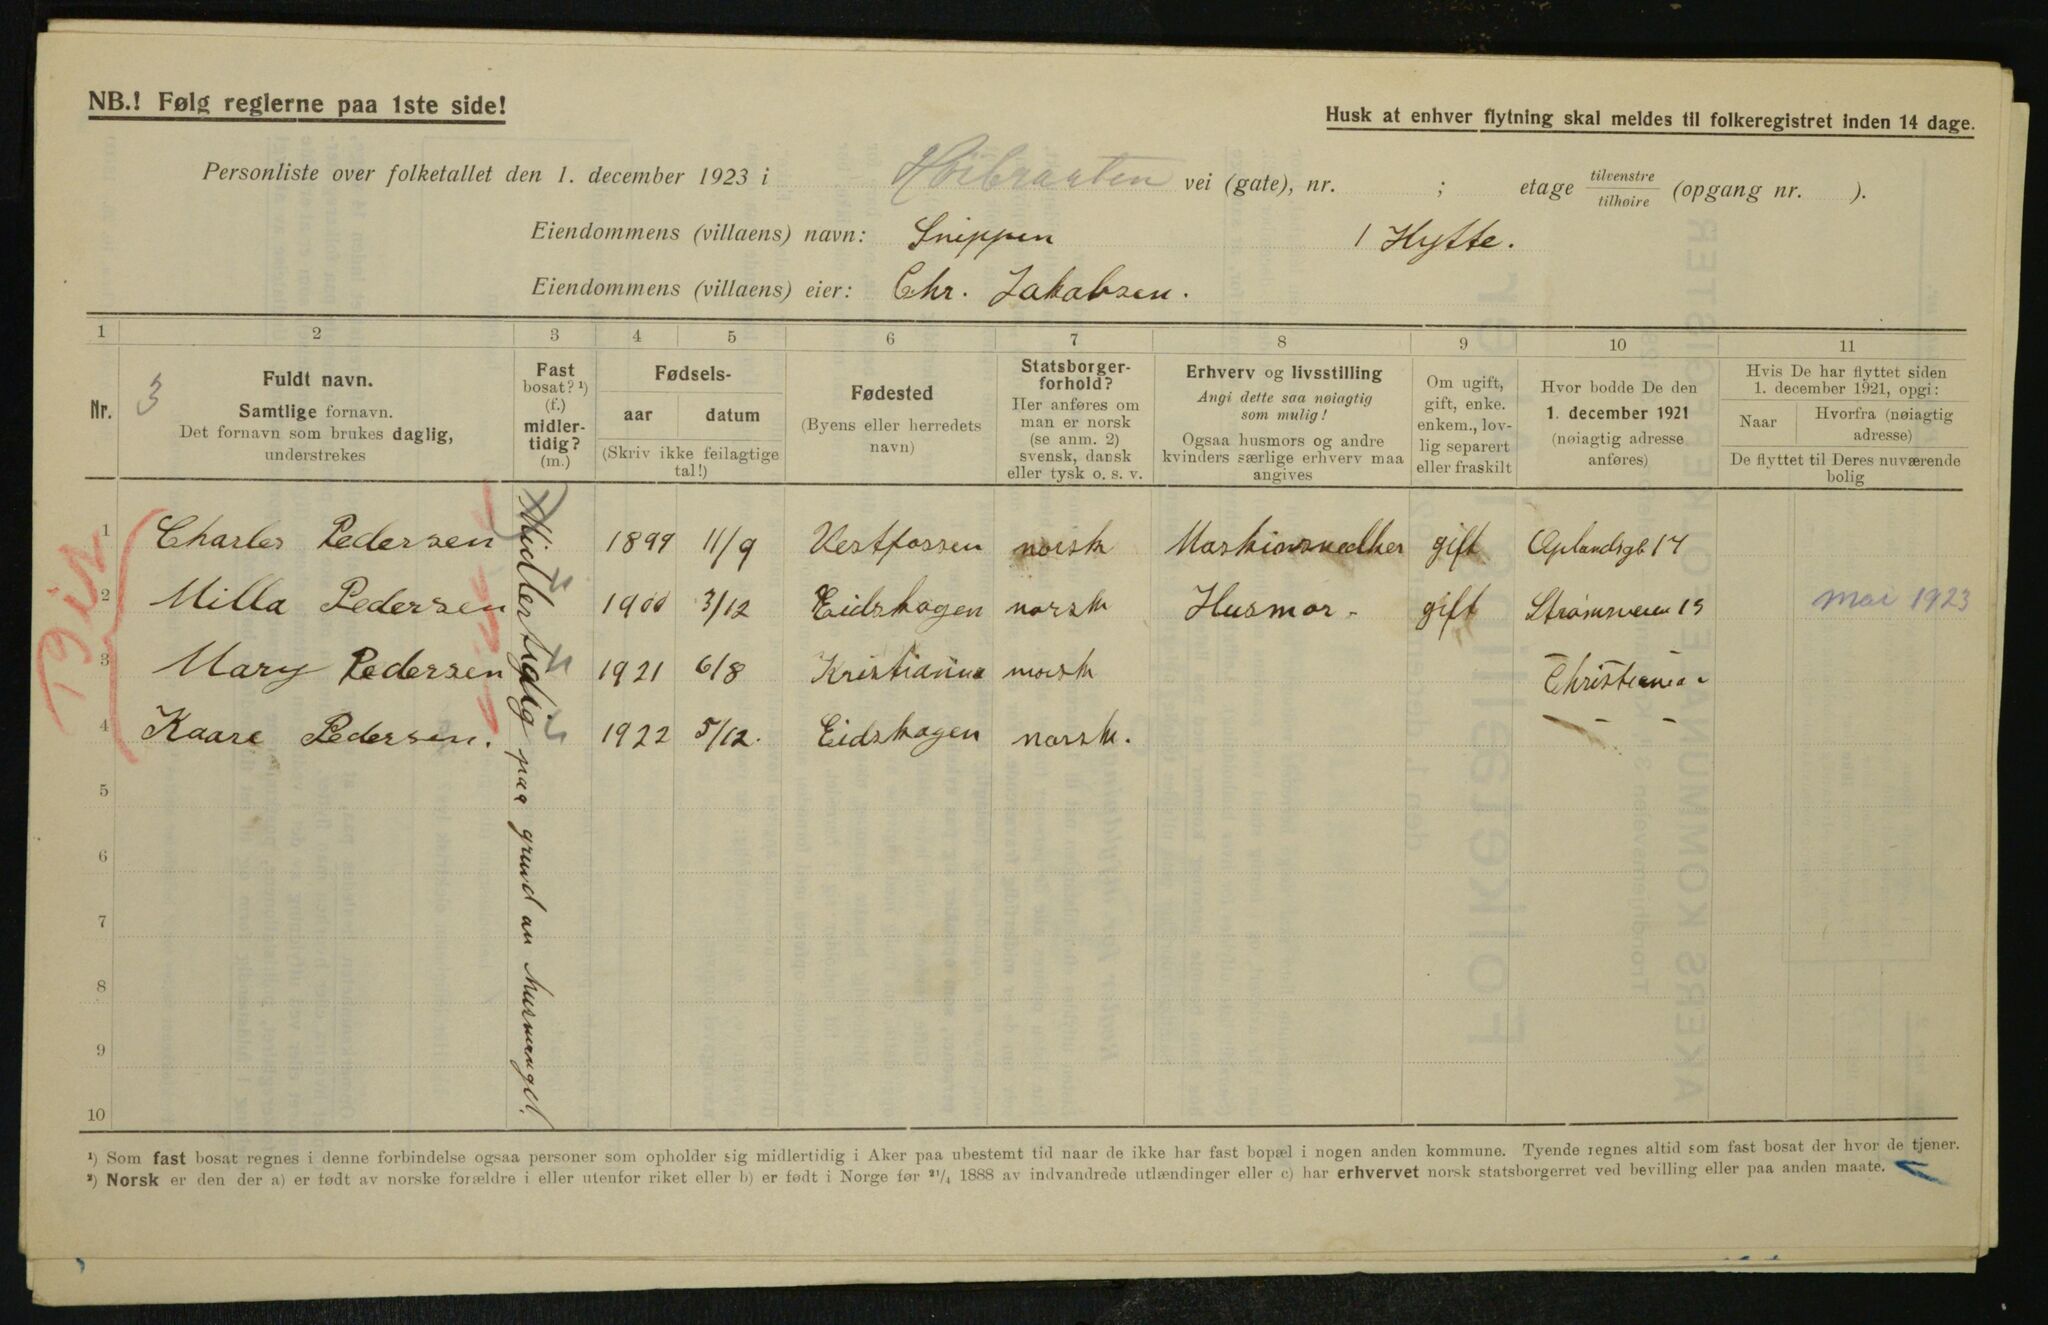 NB.! Følg reglerne paa 1ste side!
Husk at enhver flytning skal meldes til folkeregistret inden 14 dage.
Personliste over folketallet den 1. december 1923 i Høibraaten vei (gate), nr. ; etage tilvenstre / tilhøire (opgang nr. ).
Eiendommens (villaens) navn: Snippen 1 Hytte.
Eiendommens (villaens) eier: Chr. Jakobsen.
1 2 3 4 5 6 7 8 9 10 11
Nr.
3
Fuldt navn.
Samtlige fornavn.
Det fornavn som brukes daglig,
understrekes
Fast
bosat? ¹)
(f.)
midler-
tidig?
(m.)
Fødsels-
aar datum
(Skriv ikke feilagtige
tal!)
Fødested
(Byens eller herredets
navn)
Statsborger-
forhold?
Her anføres om
man er norsk
(se anm. 2)
svensk, dansk
eller tysk o. s. v.
Erhverv og livsstilling
Angi dette saa nøiagtig
som mulig!
Ogsaa husmors og andre
kvinders særlige erhverv maa
angives
Om ugift,
gift, enke.
enkem., lov-
lig separert
eller fraskilt
Hvor bodde De den
1. december 1921
(nøiagtig adresse
anføres)
Hvis De har flyttet siden
1. december 1921, opgi:
Naar Hvorfra (nøiagtig
adresse)
De flyttet til Deres nuværende
bolig
1 Charles Pedersen 1899 11/9 Vestfossen norsk Maskinsnedker gift Oplandsgt 17
2 Milla Pedersen 1900 3/12 Eidskogen norsk Husmor. gift Strømsveien 15 mai 1923
3 Mary Pedersen 1921 6/8 Kristiania norsk Christiania
4 Kaare Pedersen. 1922 5/12. Eidskogen norsk.
Midlertidig paa grund av husmangel.
5
6
7
8
9
10
¹) Som fast bosat regnes i denne forbindelse ogsaa personer som opholder sig midlertidig i Aker paa ubestemt tid naar de ikke har fast bopæl i nogen anden kommune. Tyende regnes altid som fast bosat der hvor de tjener.
²) Norsk er den der a) er født av norske forældre i eller utenfor riket eller b) er født i Norge før ²¹/₄ 1888 av indvandrede utlændinger eller c) har erhvervet norsk statsborgerret ved bevilling eller paa anden maate.